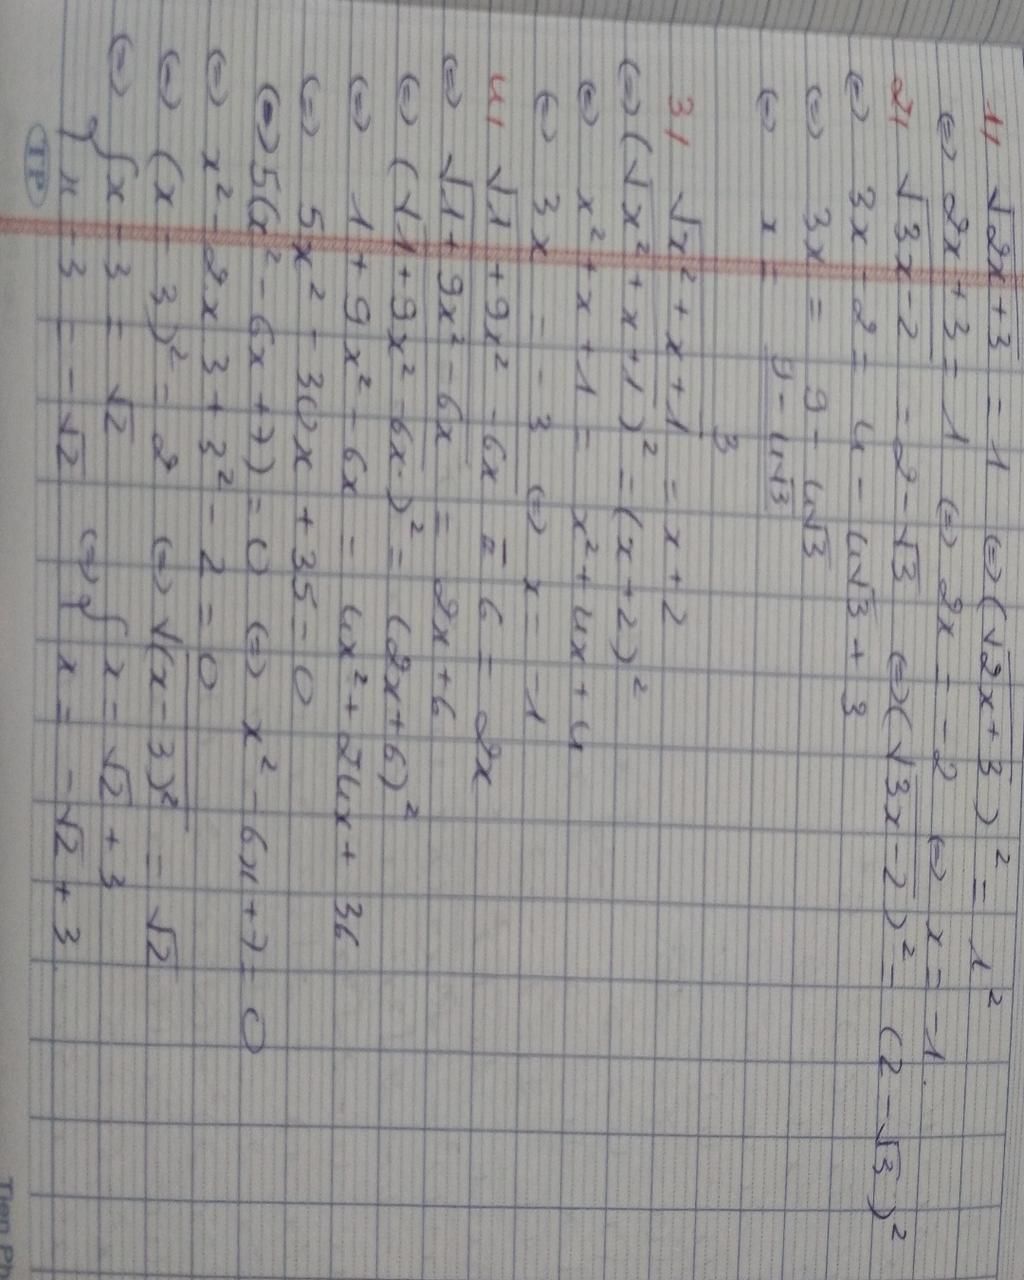 1, √(2x+3) = 1 ⇔ (√(2x+3))² = 1²
⇔ 2x+3 = 1 ⇔ 2x = -2 ⇔ x = -1.
2, √(3x-2) = 2-√3 ⇔ (√(3x-2))² = (2-√3)²
⇔ 3x-2 = 4-4√3+3
⇔ 3x = 9-4√3
⇔ x = (9-4√3)/3
3, √(x²+x+1) = x+2
⇔ (√(x²+x+1))² = (x+2)²
⇔ x²+x+1 = x²+4x+4
⇔ 3x = -3 ⇔ x = -1
4, √(1+9x²-6x) - 6 = 2x
⇔ √(1+9x²-6x) = 2x+6
⇔ (√(1+9x²-6x))² = (2x+6)²
⇔ 1+9x²-6x = 4x²+24x+36
⇔ 5x²-30x+35 = 0
⇔ 5(x²-6x+7) = 0 ⇔ x²-6x+7 = 0
⇔ x²-2x3+3²-2 = 0
⇔ (x-3)² = 2 ⇔ √(x-3)² = √2
⇔ { x-3 = √2 ⇔ { x = √2+3
x-3 = -√2 x = -√2+3
TP
Tien Ph